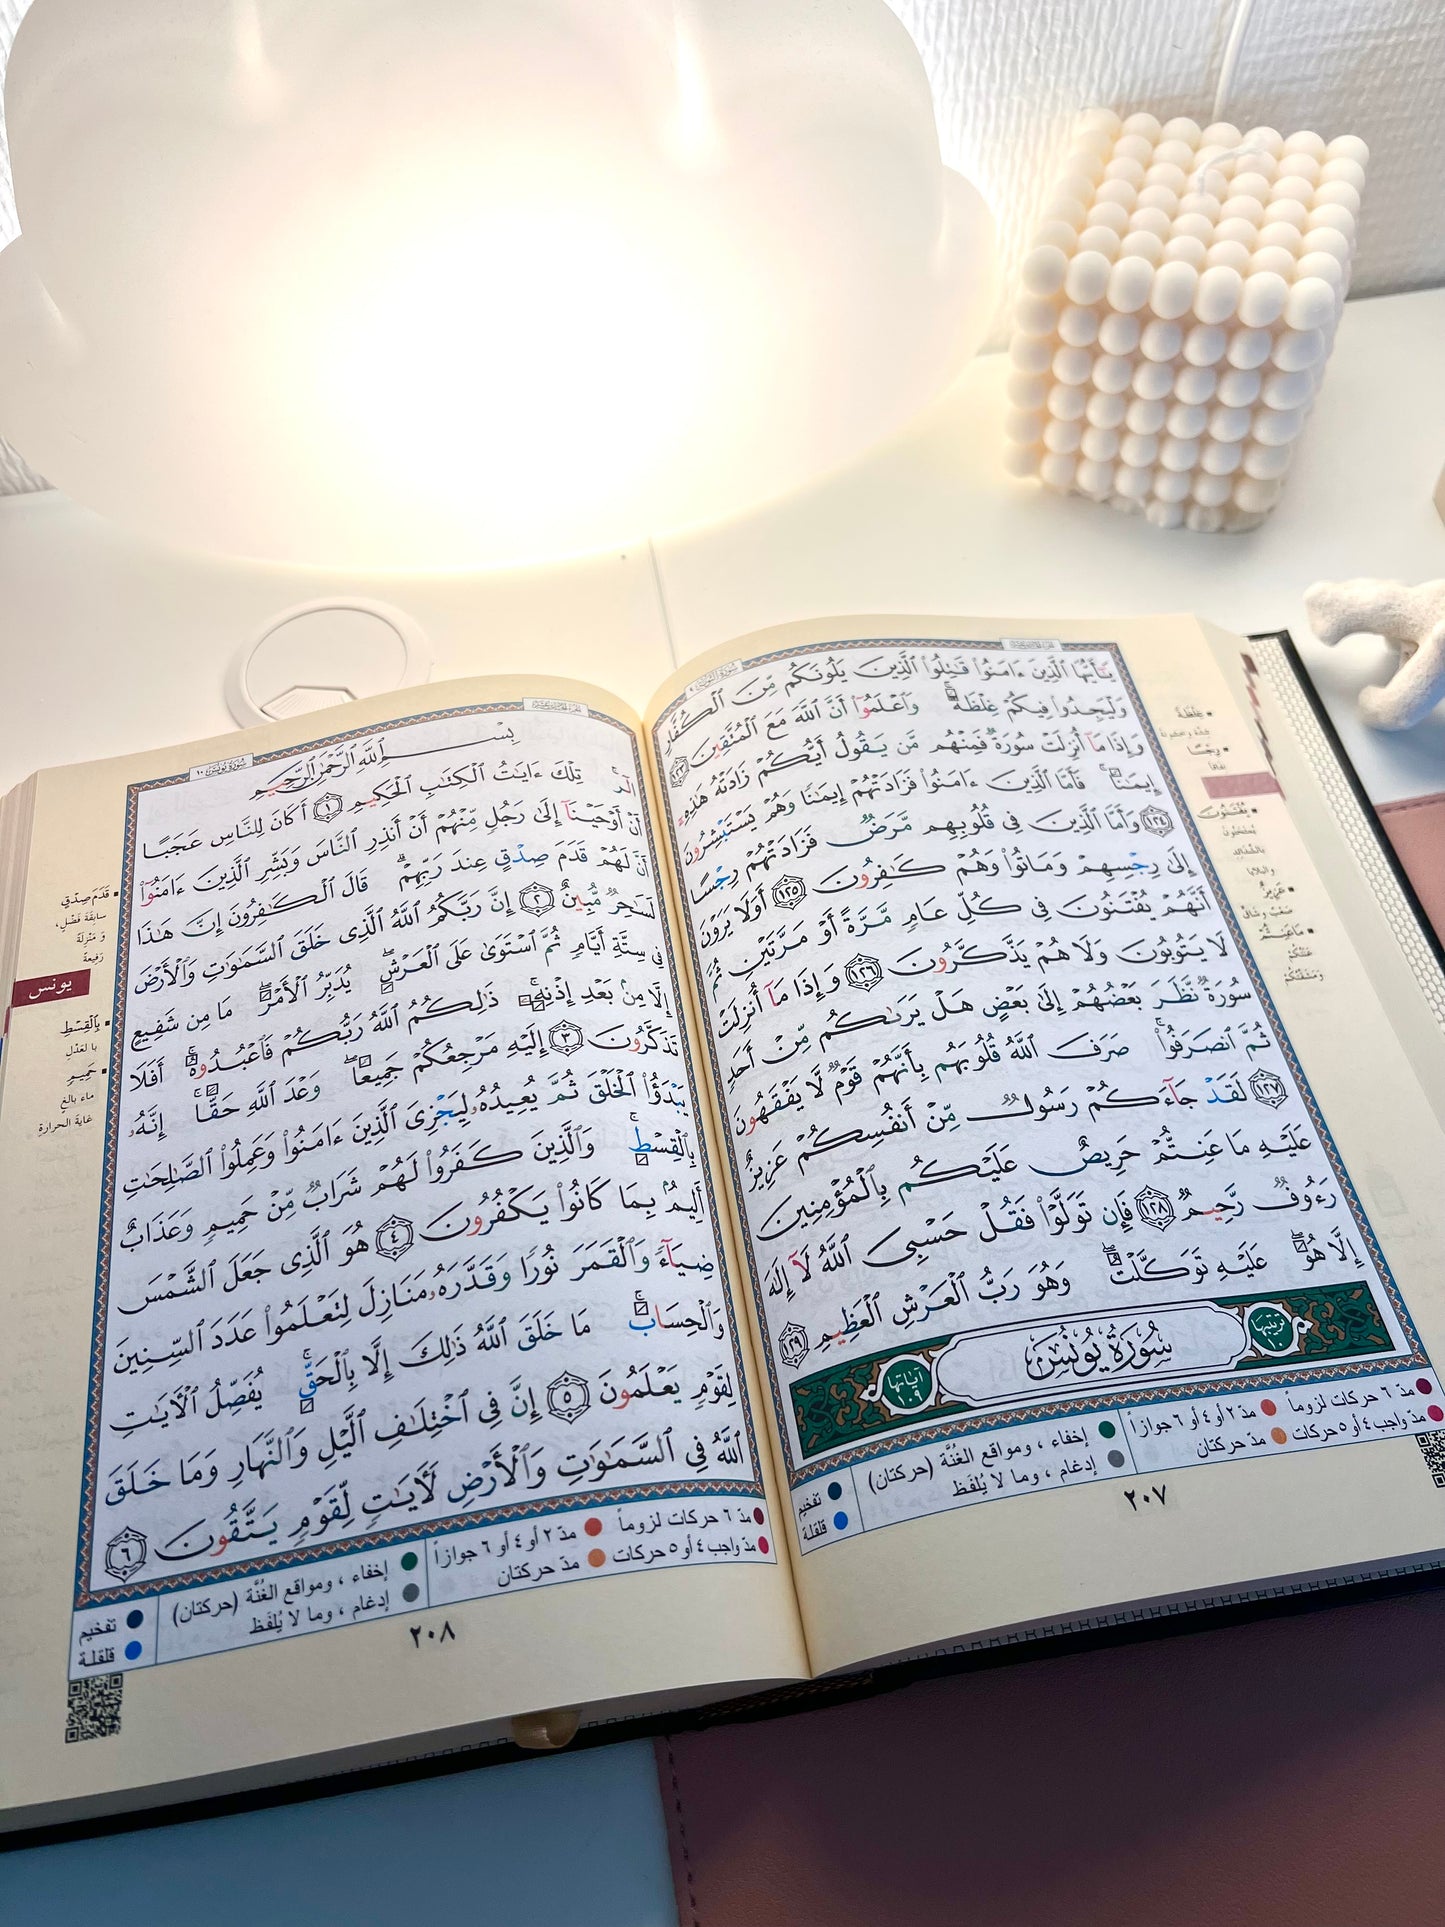 يَٰٓأَيُّهَا ٱلَّذِينَ ءَامَنُوا۟ قَٰتِلُوا۟ ٱلَّذِينَ يَلُونَكُم مِّنَ ٱلْكُفَّارِ
وَلْيَجِدُوا۟ فِيكُمْ غِلْظَةً ۚ وَٱعْلَمُوٓا۟ أَنَّ ٱللَّهَ مَعَ ٱلْمُتَّقِينَ ١٢٣
وَإِذَا مَآ أُنزِلَتْ سُورَةٌ فَمِنْهُم مَّن يَقُولُ أَيُّكُمْ زَادَتْهُ هَٰذِهِۦٓ
إِيمَٰنًا ۚ فَأَمَّا ٱلَّذِينَ ءَامَنُوا۟ فَزَادَتْهُمْ إِيمَٰنًا وَهُمْ يَسْتَبْشِرُونَ
١٢٤ وَأَمَّا ٱلَّذِينَ فِى قُلُوبِهِم مَّرَضٌ فَزَادَتْهُمْ رِجْسًا
إِلَىٰ رِجْسِهِمْ وَمَاتُوا۟ وَهُمْ كَٰفِرُونَ ١٢٥ أَوَلَا يَرَوْنَ
أَنَّهُمْ يُفْتَنُونَ فِى كُلِّ عَامٍ مَّرَّةً أَوْ مَرَّتَيْنِ ثُمَّ
لَا يَتُوبُونَ وَلَا هُمْ يَذَّكَّرُونَ ١٢٦ وَإِذَا مَآ أُنزِلَتْ
سُورَةٌ نَّظَرَ بَعْضُهُمْ إِلَىٰ بَعْضٍ هَلْ يَرَىٰكُم مِّنْ أَحَدٍ
ثُمَّ ٱنصَرَفُوا۟ ۚ صَرَفَ ٱللَّهُ قُلُوبَهُم بِأَنَّهُمْ قَوْمٌ لَّا يَفْقَهُونَ
١٢٧ لَقَدْ جَآءَكُمْ رَسُولٌ مِّنْ أَنفُسِكُمْ عَزِيزٌ
عَلَيْهِ مَا عَنِتُّمْ حَرِيصٌ عَلَيْكُم بِٱلْمُؤْمِنِينَ
رَءُوفٌ رَّحِيمٌ ١٢٨ فَإِن تَوَلَّوْا۟ فَقُلْ حَسْبِىَ ٱللَّهُ لَآ إِلَٰهَ
إِلَّا هُوَ ۖ عَلَيْهِ تَوَكَّلْتُ ۖ وَهُوَ رَبُّ ٱلْعَرْشِ ٱلْعَظِيمِ ١٢٩
ترتيبها ١٠ سُورَةُ يُونُسَ آياتها ١٠٩
مدّ ٦ حركات لزوماً مدّ ٢ أو ٤ أو ٦ جوازاً إخفاء ، ومواقع الغُنَّة (حركتان) تفخيم
مدّ واجب ٤ أو ٥ حركات مدّ حركتان إدغام ، وما لا يُلفَظ قلقلة
٢٠٧
غِلْظَةً
رِجْسًا
يُفْتَنُونَ
عَزِيزٌ
مَا عَنِتُّمْ
سُورَةُ يُونُسَ ١٠
بِسْمِ ٱللَّهِ ٱلرَّحْمَٰنِ ٱلرَّحِيمِ
الٓر ۚ تِلْكَ ءَايَٰتُ ٱلْكِتَٰبِ ٱلْحَكِيمِ ١ أَكَانَ لِلنَّاسِ عَجَبًا
أَنْ أَوْحَيْنَآ إِلَىٰ رَجُلٍ مِّنْهُمْ أَنْ أَنذِرِ ٱلنَّاسَ وَبَشِّرِ ٱلَّذِينَ ءَامَنُوٓا۟
أَنَّ لَهُمْ قَدَمَ صِدْقٍ عِندَ رَبِّهِمْ ۗ قَالَ ٱلْكَٰفِرُونَ إِنَّ هَٰذَا
لَسَٰحِرٌ مُّبِينٌ ٢ إِنَّ رَبَّكُمُ ٱللَّهُ ٱلَّذِى خَلَقَ ٱلسَّمَٰوَٰتِ وَٱلْأَرْضَ
فِى سِتَّةِ أَيَّامٍ ثُمَّ ٱسْتَوَىٰ عَلَى ٱلْعَرْشِ ۖ يُدَبِّرُ ٱلْأَمْرَ ۖ مَا مِن شَفِيعٍ
إِلَّا مِنۢ بَعْدِ إِذْنِهِۦ ۚ ذَٰلِكُمُ ٱللَّهُ رَبُّكُمْ فَٱعْبُدُوهُ ۚ أَفَلَا
تَذَكَّرُونَ ٣ إِلَيْهِ مَرْجِعُكُمْ جَمِيعًا ۖ وَعْدَ ٱللَّهِ حَقًّا ۚ إِنَّهُۥ
يَبْدَؤُا۟ ٱلْخَلْقَ ثُمَّ يُعِيدُهُۥ لِيَجْزِىَ ٱلَّذِينَ ءَامَنُوا۟ وَعَمِلُوا۟ ٱلصَّٰلِحَٰتِ
بِٱلْقِسْطِ ۚ وَٱلَّذِينَ كَفَرُوا۟ لَهُمْ شَرَابٌ مِّنْ حَمِيمٍ وَعَذَابٌ
أَلِيمٌۢ بِمَا كَانُوا۟ يَكْفُرُونَ ٤ هُوَ ٱلَّذِى جَعَلَ ٱلشَّمْسَ
ضِيَآءً وَٱلْقَمَرَ نُورًا وَقَدَّرَهُۥ مَنَازِلَ لِتَعْلَمُوا۟ عَدَدَ ٱلسِّنِينَ
وَٱلْحِسَابَ ۚ مَا خَلَقَ ٱللَّهُ ذَٰلِكَ إِلَّا بِٱلْحَقِّ ۚ يُفَصِّلُ ٱلْءَايَٰتِ
لِقَوْمٍ يَعْلَمُونَ ٥ إِنَّ فِى ٱخْتِلَٰفِ ٱلَّيْلِ وَٱلنَّهَارِ وَمَا خَلَقَ
ٱللَّهُ فِى ٱلسَّمَٰوَٰتِ وَٱلْأَرْضِ لَءَايَٰتٍ لِّقَوْمٍ يَتَّقُونَ ٦
مدّ ٦ حركات لزوماً مدّ ٢ أو ٤ أو ٦ جوازاً إخفاء ، ومواقع الغُنَّة (حركتان) تفخيم
مدّ واجب ٤ أو ٥ حركات مدّ حركتان إدغام ، وما لا يُلفَظ قلقلة
٢٠٨
قَدَمَ صِدْقٍ
سابقةَ فَضْلٍ ،
وَ مَنْزِلَة
رَفِيعةً
يونس
بِالْقِسْطِ
با لعَدْلِ
حَمِيمٍ
ماء بالغ
غايَةَ الحرارةِ